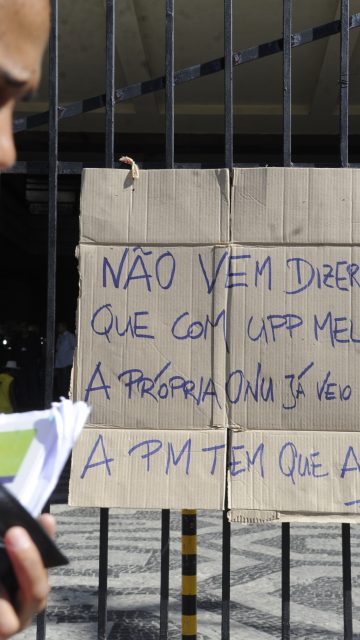 NÃO VEM DIZER
QUE COM UPP MEL
A PRÓPRIA ONU JÁ VEIO
A PM TEM QUE A